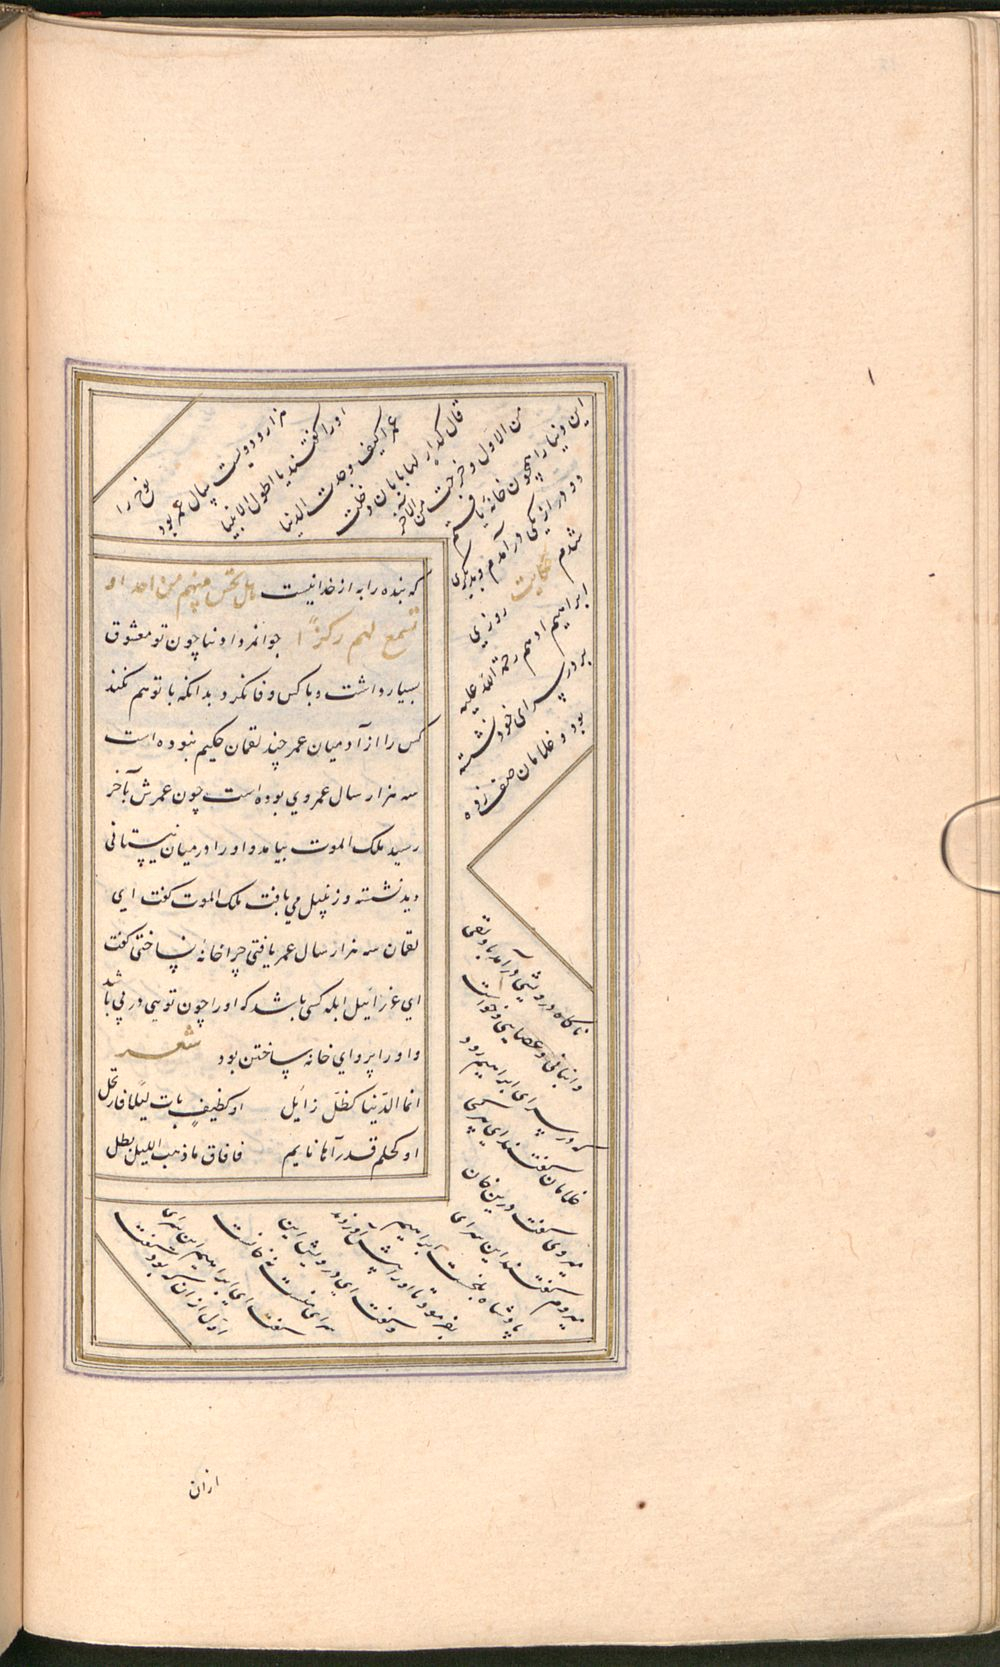 که بنده را به از خدا نیست هل تحس منهم من احد او
تسمع لهم رکزاً جوانمردا دنیا چون تو معشوق
بسیار داشت و با کس وفا نکرد بدانکه با تو هم نکند
کس را از آدمیان عمر چند لقمان حکیم نبوده است
سه هزار سال عمر وی بوده است چون عمرش بآخر
رسید ملک الموت بیامد و او را در میان نیستانی
دید نشسته و زنبیل می بافت ملک الموت گفت ای
لقمان سه هزار سال عمر یافتی چرا خانهٔ نساختی گفت
ای عزرائیل ابله کسی باشد که او را چون تویی در پی باشد
و او را پروای خانه ساختن بود شعر
انما الدنیا کظل زائل او کضیف بات لیلا فارتحل
او کحلم قد رآها نایم فافاق ما ذهب اللیل بطل
نوح را
هزار و دویست سال عمر بود
او را گفتند یا اطول الانبیا
عمرا کیف وجدت الدنیا
قال کدار لها بابان دخلت
من الاول و خرجت من الآخر
این دنیا را همچون خانهٔ یافتم
دو در از یکی در آمدم و بدیگری
شدم حکایت روزی
ابراهیم ادهم رحمة الله علیه
بر در سرای خود نشسته
بود و غلامان صف زده
ناگاه درویشی در آمد با دلقی
و انبانی و عصایی و خواست
که در سرای ابراهیم رود
غلامان گفتند ای پیر کجا
میروی گفت درین خان
میروم گفتند این سرای
پادشاه بلخست ابراهیم
بفرمود تا او را پیش آوردند
و گفت ای درویش این
سرای منست نه خانست
گفت ای ابراهیم این سرای
اول از آن که بود گفت
از آن